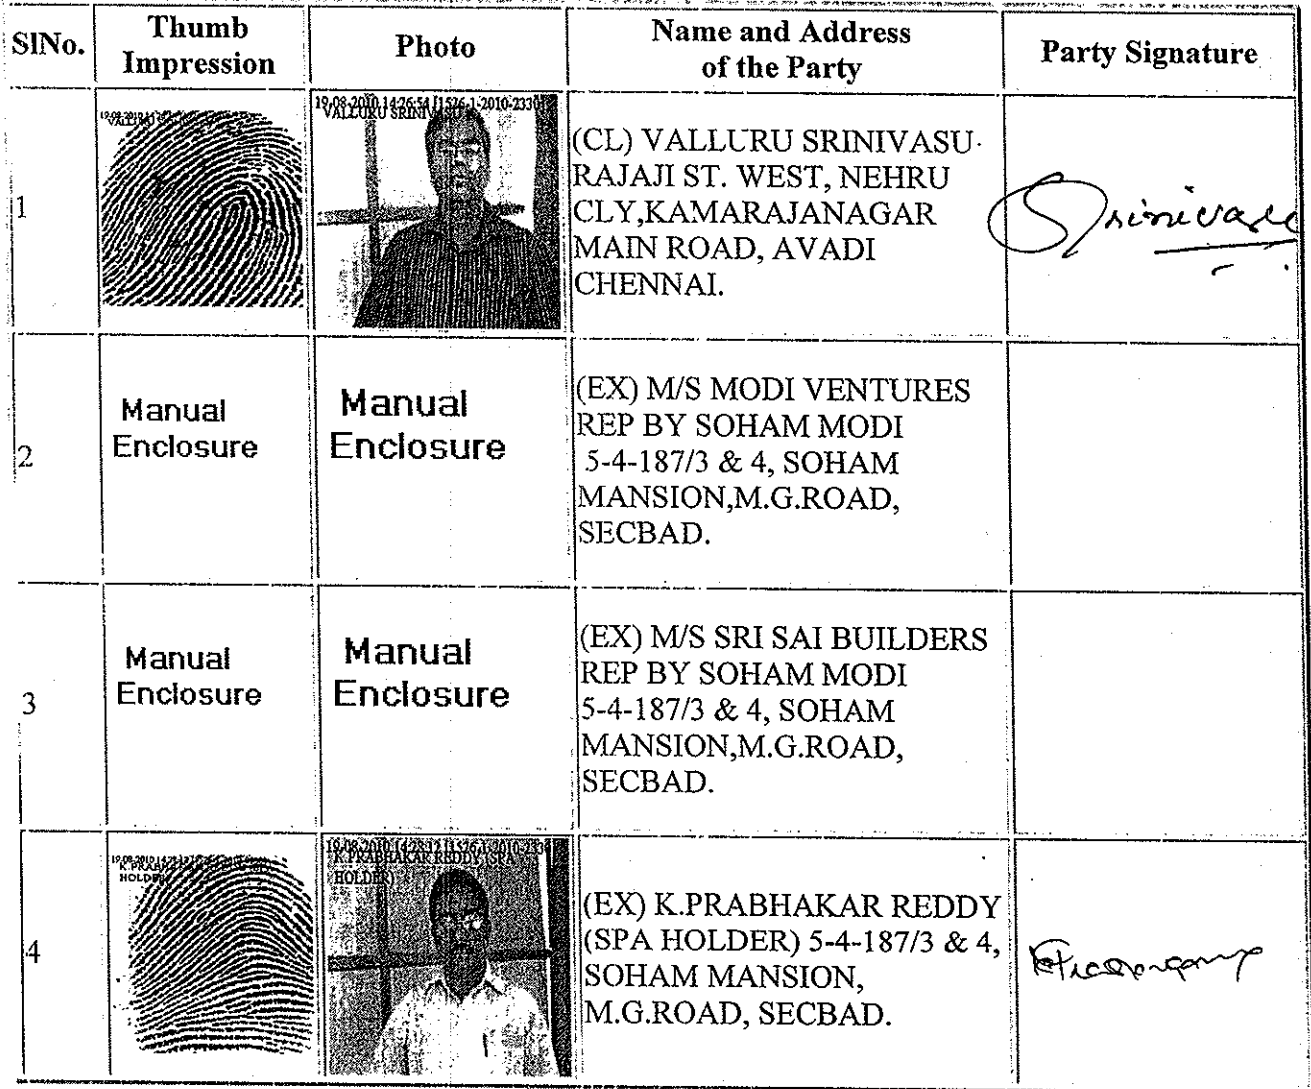 SlNo.
Thumb
Impression
Photo
Name and Address
of the Party
Party Signature
1
19-08-2010 14:26:54
VALLURU SRINIVASU
(CL) VALLURU SRINIVASU
RAJAJI ST. WEST, NEHRU
CLY,KAMARAJANAGAR
MAIN ROAD, AVADI
CHENNAI.
Srinivasu
2
Manual
Enclosure
Manual
Enclosure
(EX) M/S MODI VENTURES
REP BY SOHAM MODI
5-4-187/3 & 4, SOHAM
MANSION,M.G.ROAD,
SECBAD.
3
Manual
Enclosure
Manual
Enclosure
(EX) M/S SRI SAI BUILDERS
REP BY SOHAM MODI
5-4-187/3 & 4, SOHAM
MANSION,M.G.ROAD,
SECBAD.
4
HOLDER)
19-08-2010 14:28:12
K.PRABHAKAR REDDY (SPA
HOLDER)
(EX) K.PRABHAKAR REDDY
(SPA HOLDER) 5-4-187/3 & 4,
SOHAM MANSION,
M.G.ROAD, SECBAD.